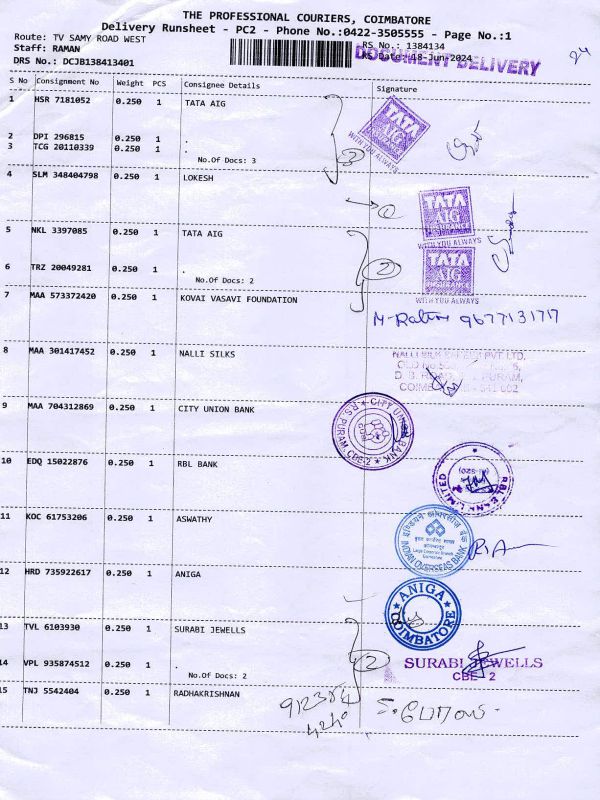 THE PROFESSIONAL COURIERS, COIMBATORE
Delivery Runsheet - PC2 - Phone No.:0422-3505555 - Page No.:1
Route: TV SAMY ROAD WEST
RS No.: 1384134
Staff: RAMAN
RS Date: 18-Jun-2024
DOCUMENT DELIVERY
DRS No.: DCJB138413401
S No Consignment No Weight PCS Consignee Details Signature
1 HSR 7181052 0.250 1 TATA AIG
TATA AIG WITH YOU ALWAYS
2 DPI 296815 0.250 1 .
3 TCG 20110339 0.250 1 .
No.Of Docs: 3
3
4 SLM 348404798 0.250 1 LOKESH
1
TATA AIG INSURANCE
WITH YOU ALWAYS
5 NKL 3397085 0.250 1 TATA AIG
6 TRZ 20049281 0.250 1 .
No.Of Docs: 2
2
TATA AIG INSURANCE
WITH YOU ALWAYS
7 MAA 573372420 0.250 1 KOVAI VASAVI FOUNDATION
9677131717
8 MAA 301417452 0.250 1 NALLI SILKS
9 MAA 704312869 0.250 1 CITY UNION BANK
CITY UNION BANK R.S. PURAM, CBE-2
10 EDQ 15022876 0.250 1 RBL BANK
RBL BANK LIMITED
11 KOC 61753206 0.250 1 ASWATHY
INDIAN OVERSEAS BANK
12 HRD 735922617 0.250 1 ANIGA
ANIGA COIMBATORE
13 TVL 6103930 0.250 1 SURABI JEWELLS
14 VPL 935874512 0.250 1 .
No.Of Docs: 2
2
SURABI JEWELLS
CBE 2
15 TNJ 5542404 0.250 1 RADHAKRISHNAN